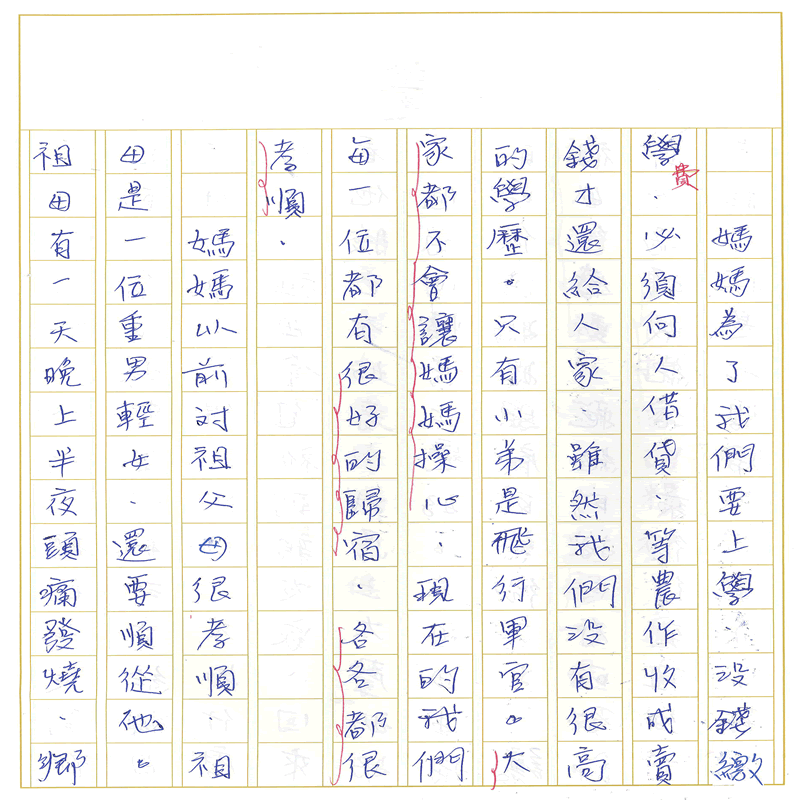 媽媽為了我們要上學、沒錢繳
學費.必須向人借貸.等農作收成賣
錢才還給人家.雖然我們沒有很高
的學歷。只有小弟是飛行軍官。大
家都不會讓媽媽操心.現在的我們
每一位都有很好的歸宿.各各都很
孝順.
媽媽以前対祖父母很孝順.祖
母是一位重男輕女.還要順從他。
祖母有一天晚上半夜頭痛發燒.鄉